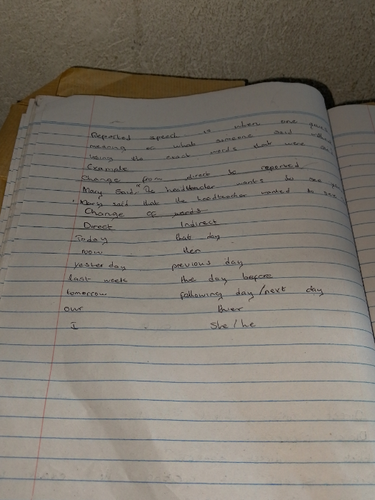 Reported speech is when one gives
meaning of what someone said
taking the exact words that were
Example
Change from direct to reported
Mary said, "The headteacher wants to see you
Mary said that the headteacher wanted to see
Change of words
Direct Indirect
Today that day
Now then
yesterday previous day
last week the day before
tomorrow following day/next day
our
I She/he